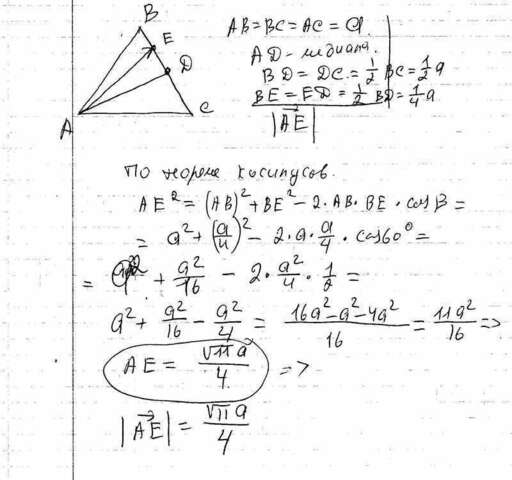 B
E
D
A
C
AB = BC = AC = a.
AD - медиана.
BD = DC = 1/2 BC = 1/2 a
BE = ED = 1/2 BD = 1/4 a
|AE|
По теореме косинусов.
AE² = (AB)² + BE² - 2·AB·BE·cos B =
= a² + (a/4)² - 2·a·a/4·cos60° =
= a² + a²/16 - 2·a²/4·1/2 =
a² + a²/16 - a²/4 = 16a²-a²-4a²/16 = 11a²/16 =>
AE = √11 a/4 =>
|AE| = √11 a/4